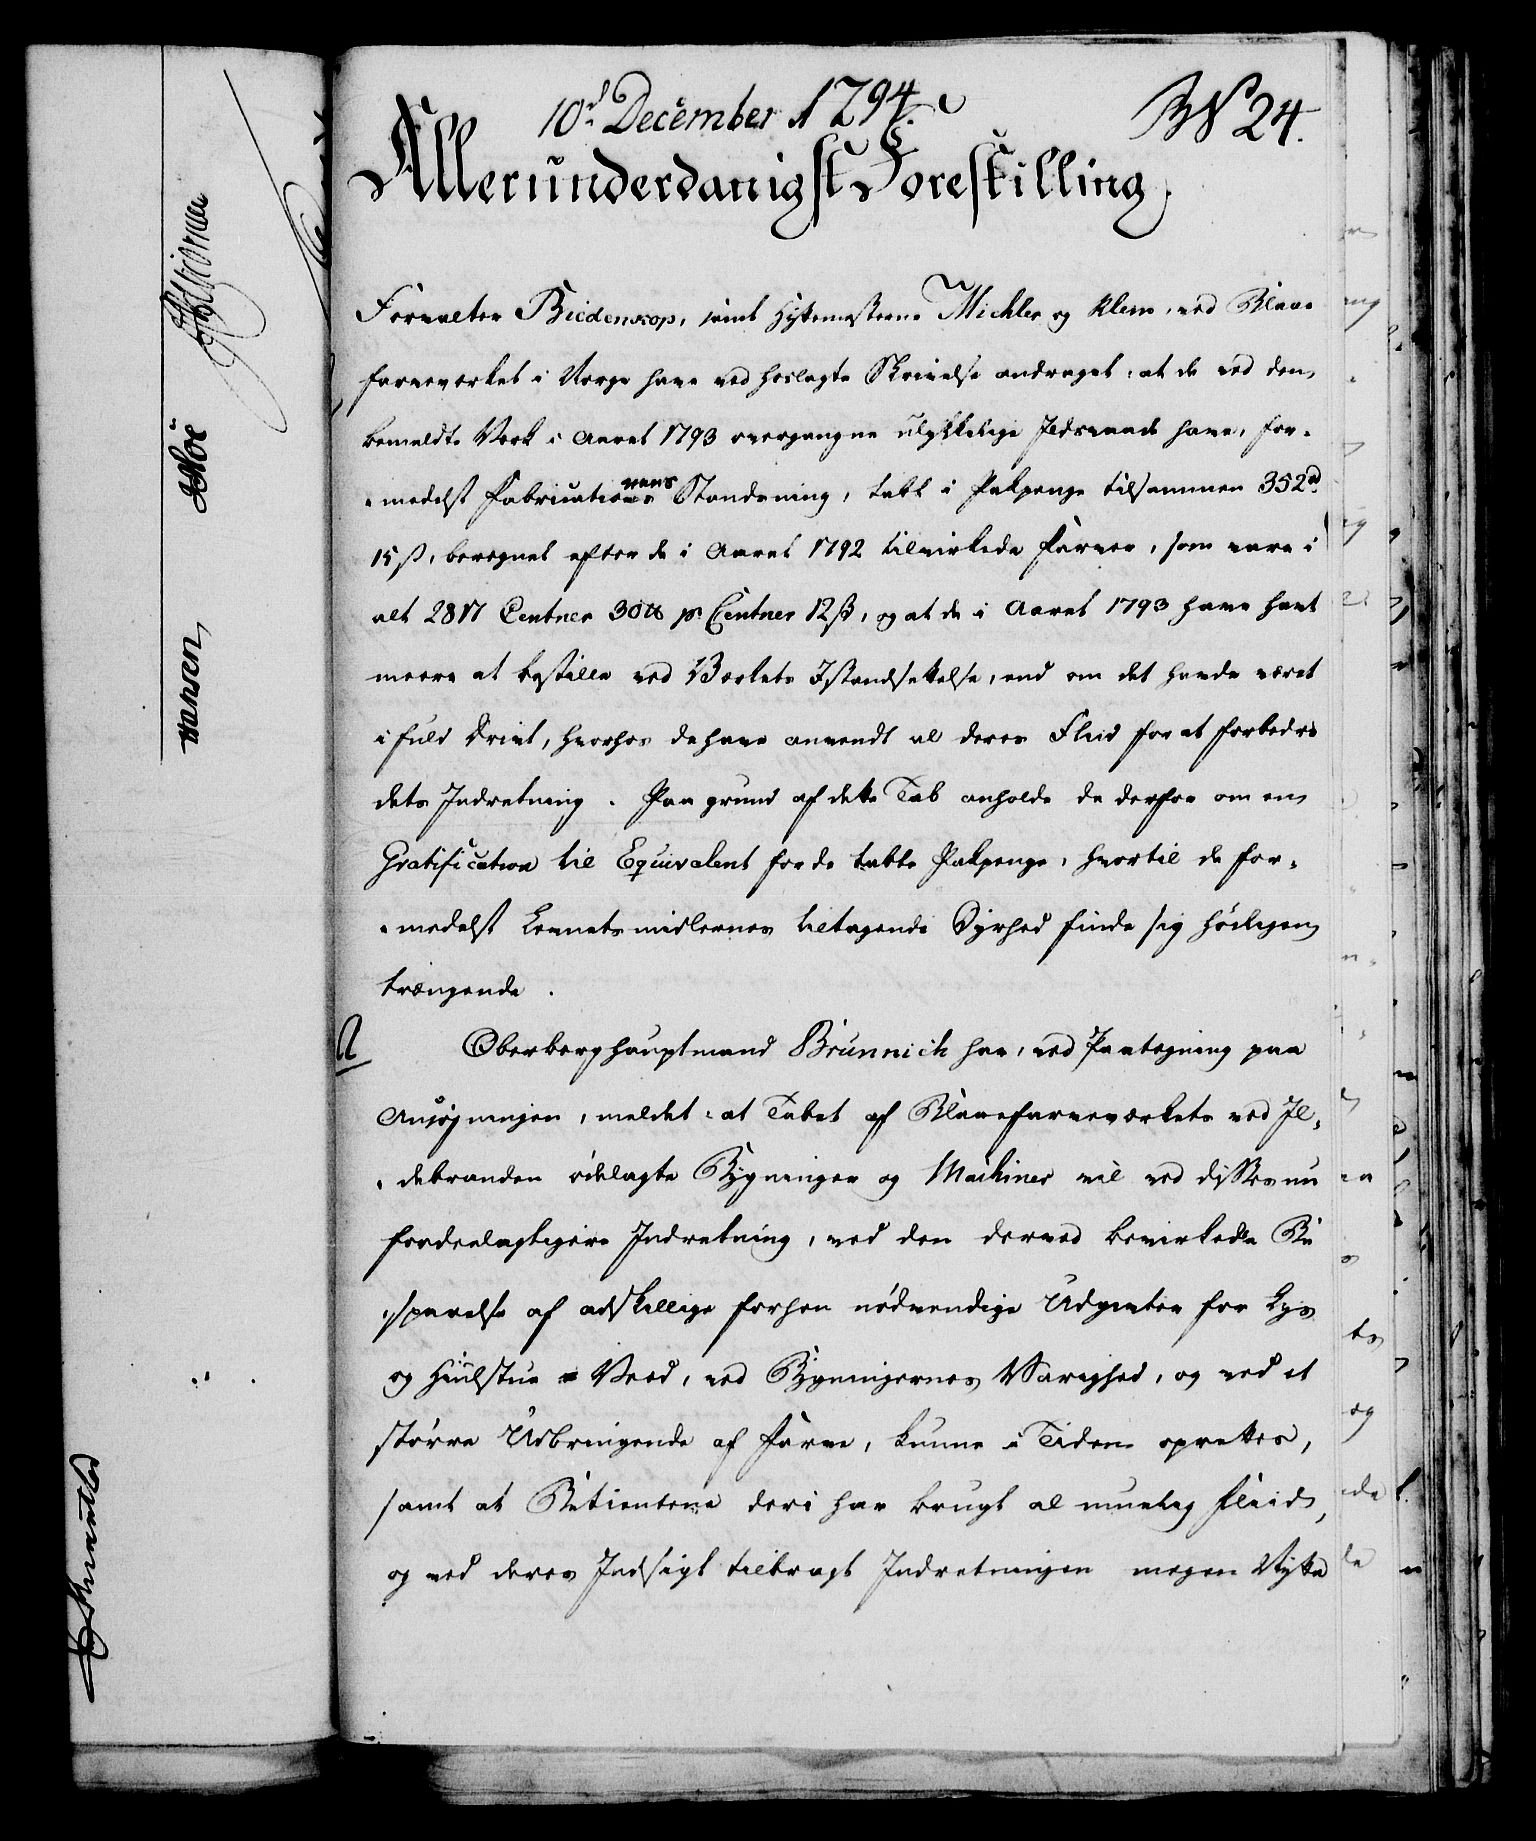 10d December 1794.
No 24.
Allerunderdanigst Forestilling.
Forvalter Biedenkop, samt Hyttemesterne Michler og Klem, ved Blaae
farveverket i Norge have ved hoslagte Skrivelse andraget: at de ved den,
bemeldte Verk i Aaret 1793 overgangne ulykkelige Ildsvaade have, for-
-medelst Fabricationens Standsning, tabt i Pakpenge tilsammen 352 rd
15 ß, beregnet efter de i Aaret 1792 tilvirkede Farver, som vare i
alt 2817 Centner 30 ℔ pr Centner 12 ß, og at de i Aaret 1793 have havt
meere at bestille ved Verkets Istandsættelse, end om det havde været
i fuld Drivt, hvorhos de have anvendt al deres Fliid for at forbedre
dets Indretning. Paa grund af dette Tab anholde de derfor om en
Gratification til Equivalent for de tabte Pakpenge, hvortil de for-
-medelst Levnetsmidlernes tiltagende Dyrhed finde sig høiligen
trængende.
Oberberghauptmand Brünnich har, ved Paategning paa
Ansøgningen, meldet: at Tabet af Blaaefarveværkets ved Il-
-debranden ødelagte Bygninger og Machiner vil ved disses nu
fordeelagtigere Indretning, ved den derved bevirkede Be
-sparelse af adskillige forhen nødvendige Udgivter for Lys
og Hiulstue-Veed, ved Bygningernes Varighed, og ved et
større Udbringende af Farve, kunne i Tiden oprettes,
samt at Betienterne deri har brugt al muelig Fliid,
og ved deres Indsigt tilbragt Indretningen megen Nytte
Hansen